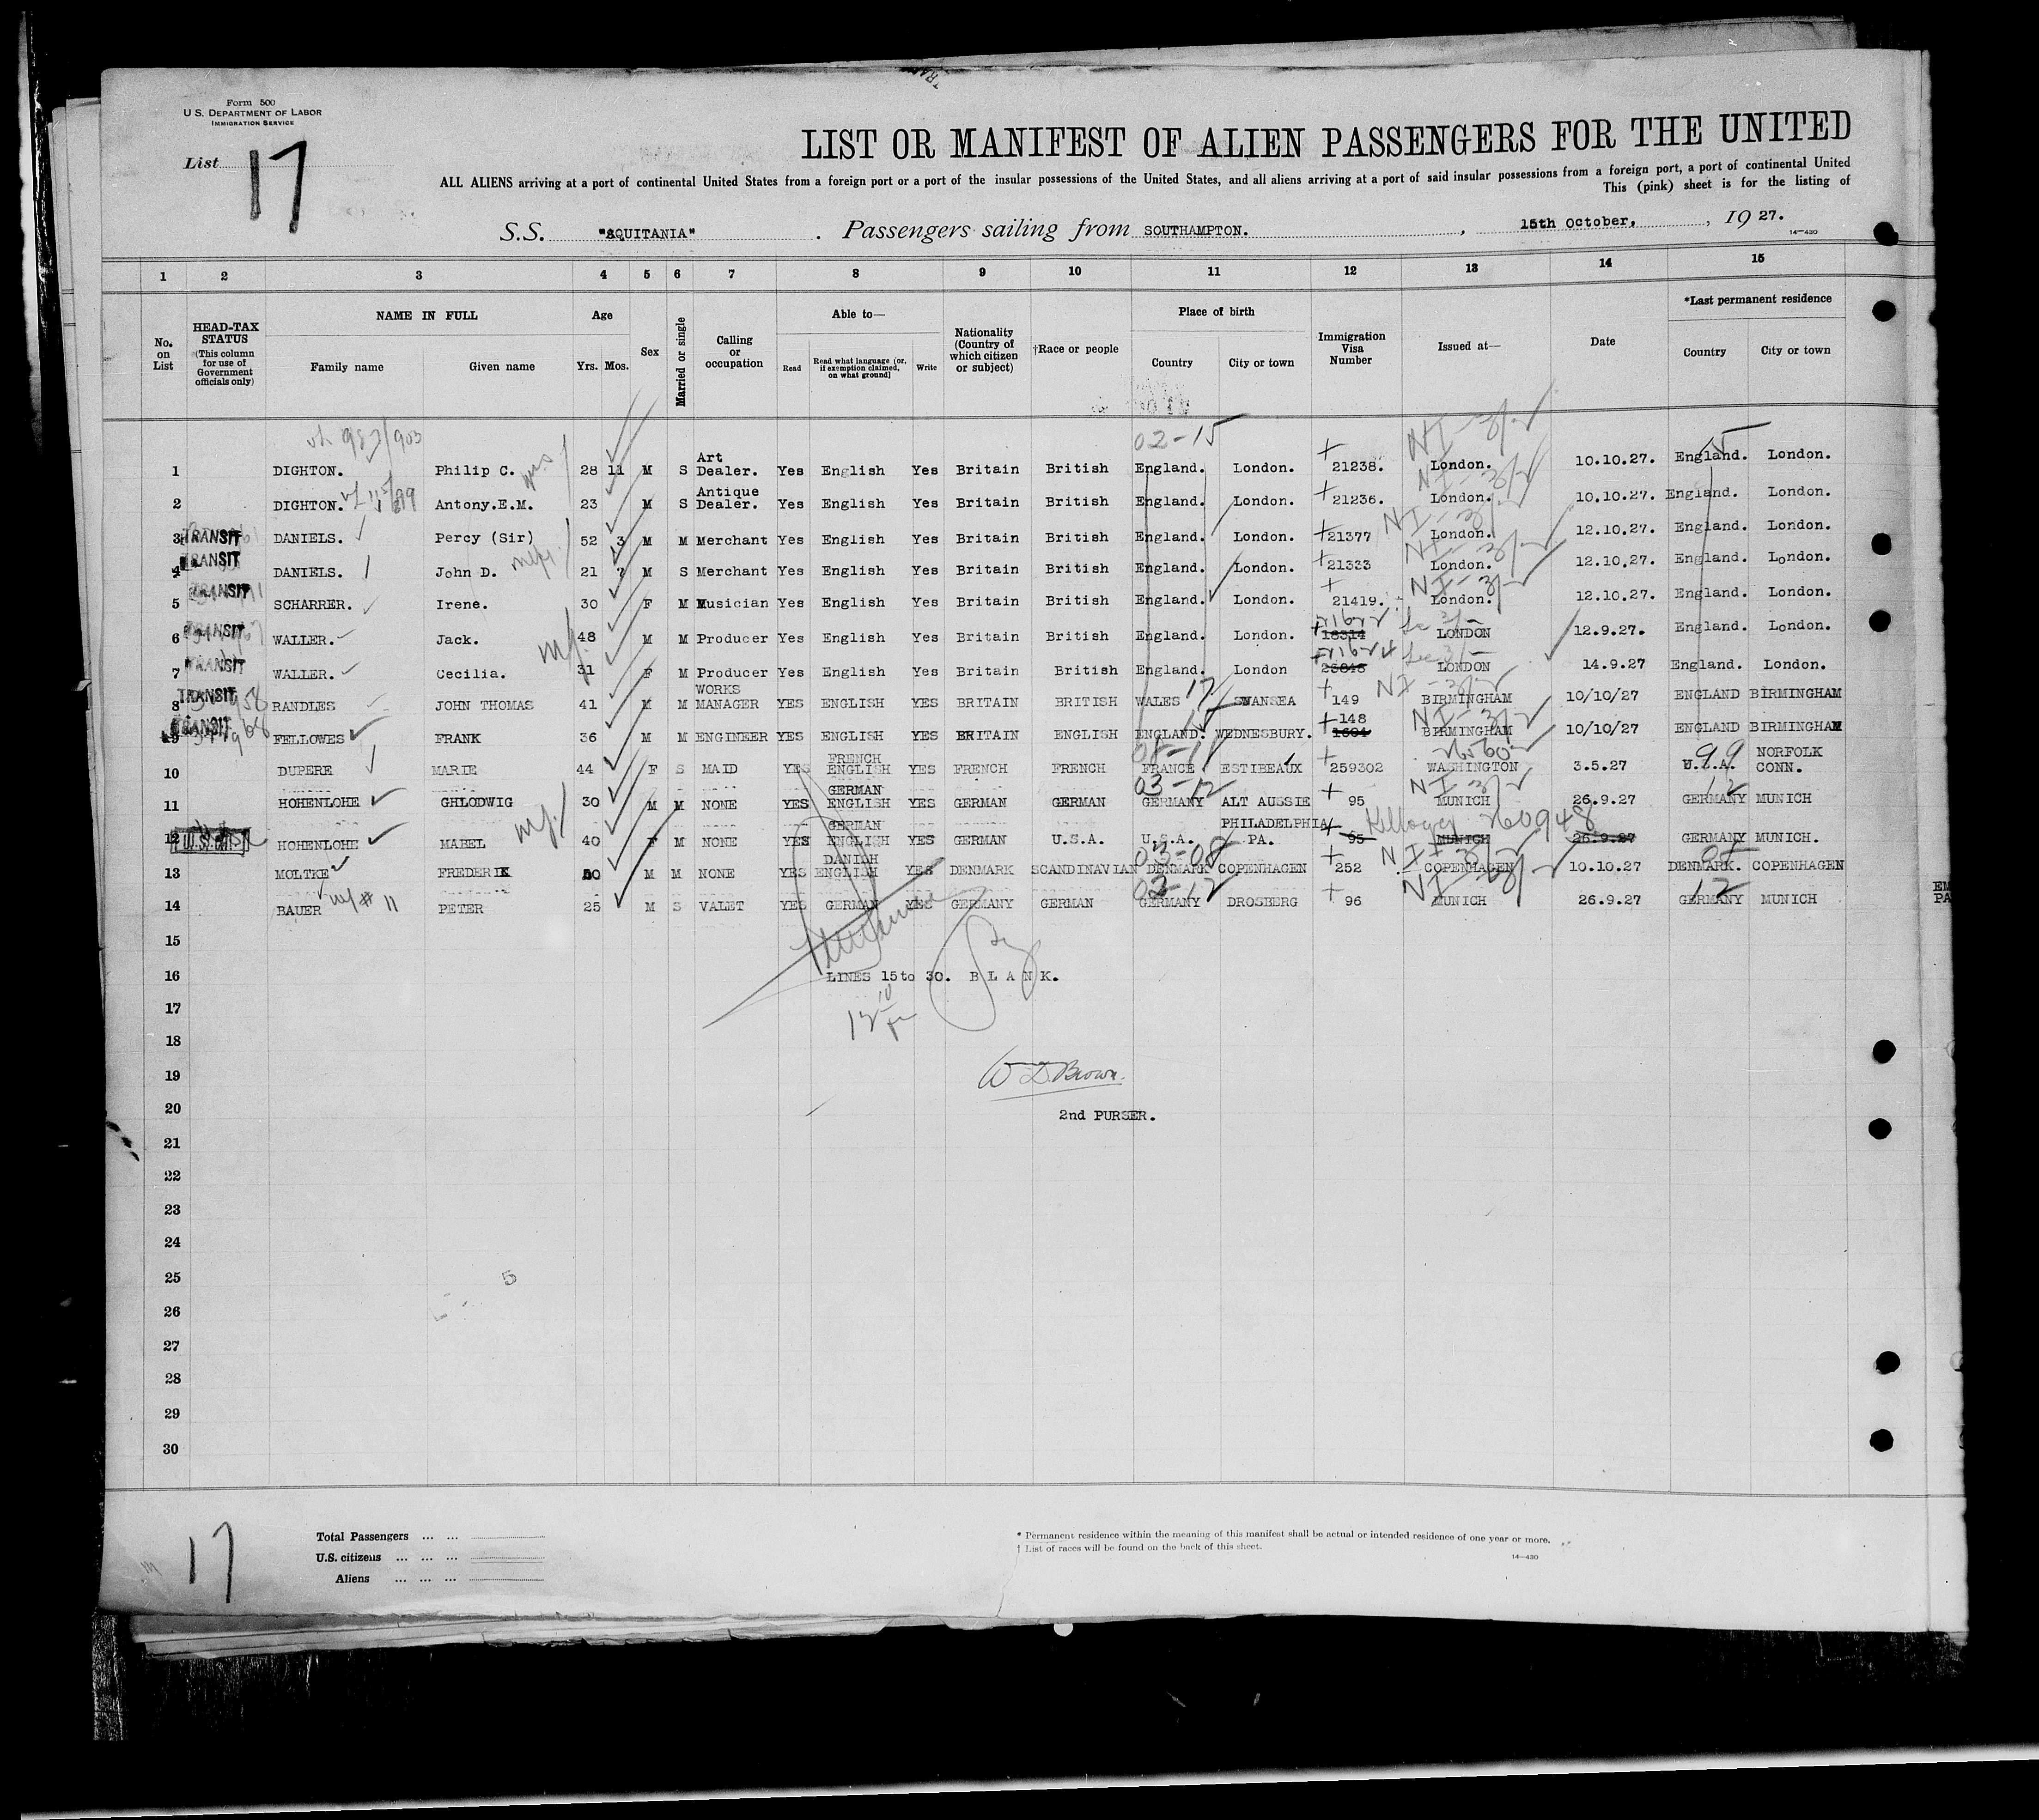 Form 500
U.S. DEPARTMENT OF LABOR
IMMIGRATION SERVICE
List 17
LIST OR MANIFEST OF ALIEN PASSENGERS FOR THE UNITED
ALL ALIENS arriving at a port of continental United States from a foreign port or a port of the insular possessions of the United States, and all aliens arriving at a port of said insular possessions from a foreign port, a port of continental United
This (pink) sheet is for the listing of
S.S. "AQUITANIA". Passengers sailing from SOUTHAMPTON. , 15th October, , 19 27.
14—430
1 2 3 4 5 6 7 8 9 10 11 12 13 14 15
No. on List
HEAD-TAX STATUS (This column for use of Government officials only)
NAME IN FULL
Family name Given name
Age
Yrs. Mos.
Sex
Married or single
Calling or occupation
Able to—
Read
Read what language (or, if exemption claimed, on what ground)
Write
Nationality (Country of which citizen or subject)
†Race or people
Place of birth
Country City or town
Immigration Visa Number
Issued at—
Date
*Last permanent residence
Country City or town
02-15 15
1 DIGHTON. Philip C. 28 11 M S Art Dealer. Yes English Yes Britain British England. London. 21238. London. 10.10.27. England. London.
2 DIGHTON. Antony.E.M. 23 M S Antique Dealer. Yes English Yes Britain British England. London. 21236. London. 10.10.27. England. London.
3 TRANSIT DANIELS. Percy (Sir) 52 3 M M Merchant Yes English Yes Britain British England. London. 21377 London. 12.10.27. England. London.
4 TRANSIT DANIELS. John D. 21 7 M S Merchant Yes English Yes Britain British England. London. 21333 London. 12.10.27. England. London.
5 TRANSIT SCHARRER. Irene. 30 F M Musician Yes English Yes Britain British England. London. 21419. London. 12.10.27. England. London.
6 TRANSIT WALLER. Jack. 48 M M Producer Yes English Yes Britain British England. London. 18314 LONDON 12.9.27. England. London.
7 TRANSIT WALLER. Cecilia. 31 F M Producer Yes English Yes Britain British England. London LONDON 14.9.27 England. London.
8 TRANSIT RANDLES JOHN THOMAS 41 M M WORKS MANAGER YES ENGLISH YES BRITAIN BRITISH WALES 17 SWANSEA 149 BIRMINGHAM 10/10/27 ENGLAND BIRMINGHAM
9 TRANSIT FELLOWES FRANK 36 M M ENGINEER YES ENGLISH YES BRITAIN ENGLISH ENGLAND. WEDNESBURY. 148 1604 BIRMINGHAM 10/10/27 ENGLAND BIRMINGHAM
10 DUPERE MARIE 44 F S MAID YES FRENCH ENGLISH YES FRENCH FRENCH 08-11 FRANCE ESTIBEAUX 259302 WASHINGTON 3.5.27 99 U.S.A. NORFOLK CONN.
11 HOHENLOHE GHLODWIG 30 M M NONE YES GERMAN ENGLISH YES GERMAN GERMAN 03-12 GERMANY ALT AUSSIE 95 MUNICH 26.9.27 12 GERMANY MUNICH
12 HOHENLOHE MABEL 40 F M NONE YES GERMAN ENGLISH YES GERMAN U.S.A. U.S.A. PHILADELPHIA PA. 95 MUNICH 26.9.27 GERMANY MUNICH.
13 MOLTKE FREDERIK 50 M M NONE YES DANISH ENGLISH YES DENMARK SCANDINAVIAN 03-08 DENMARK COPENHAGEN 252 COPENHAGEN 10.10.27 DENMARK. COPENHAGEN
14 BAUER w/ # 11 PETER 25 M S VALET YES GERMAN YES GERMANY GERMAN 03-12 GERMANY DROSBERG 96 MUNICH 26.9.27 12 GERMANY MUNICH
15
16 LINES 15 to 30. BLANK.
17
18
19 W D Brown.
20 2nd PURSER.
21
22
23
24
25
26
27
28
29
30
17
Total Passengers ... ...
U.S. citizens ... ... ...
Aliens ... ... ...
* Permanent residence within the meaning of this manifest shall be actual or intended residence of one year or more.
† List of races will be found on the back of this sheet.
14—430